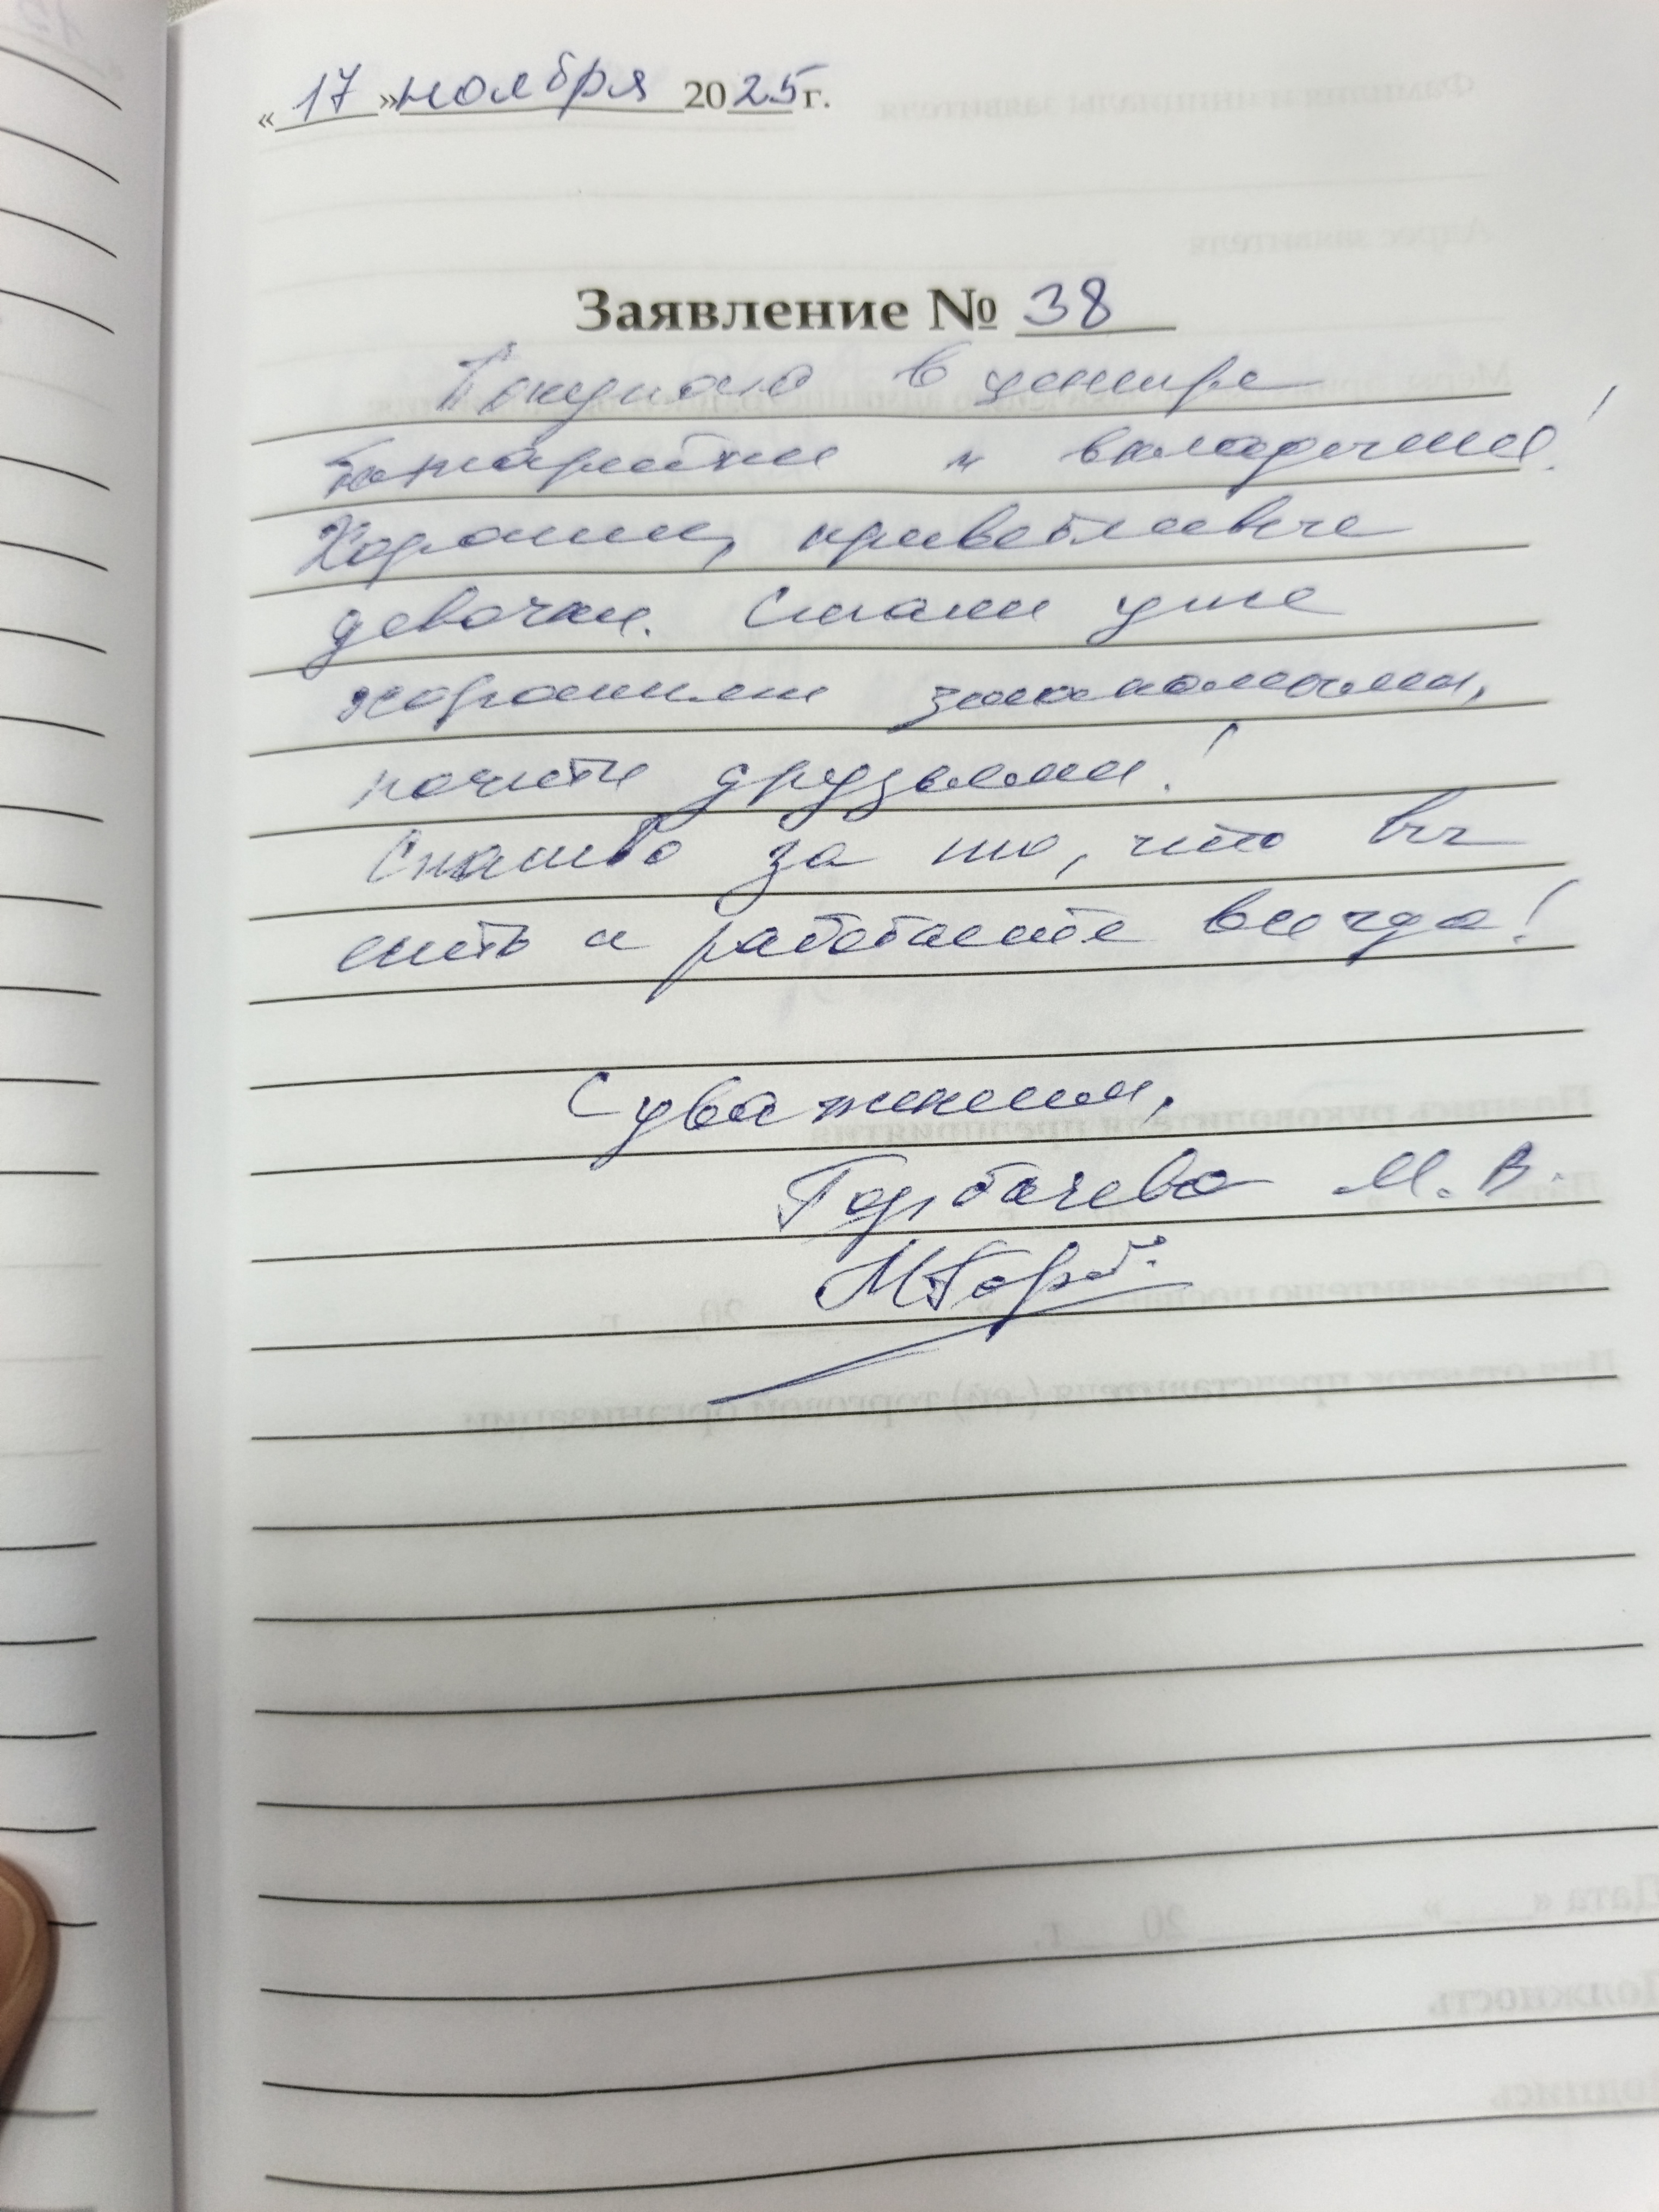 « 17 » ноября 2025 г.
Заявление № 38
Покупаю в центре
батарейки и вкладыши!
Хорошие, приветливые
девочки. Стали уже
хорошими знакомыми,
почти друзьями!
Спасибо за то, что вы
есть и работаете всегда!
С уважением,
Горбачева М. В.
МГорб.